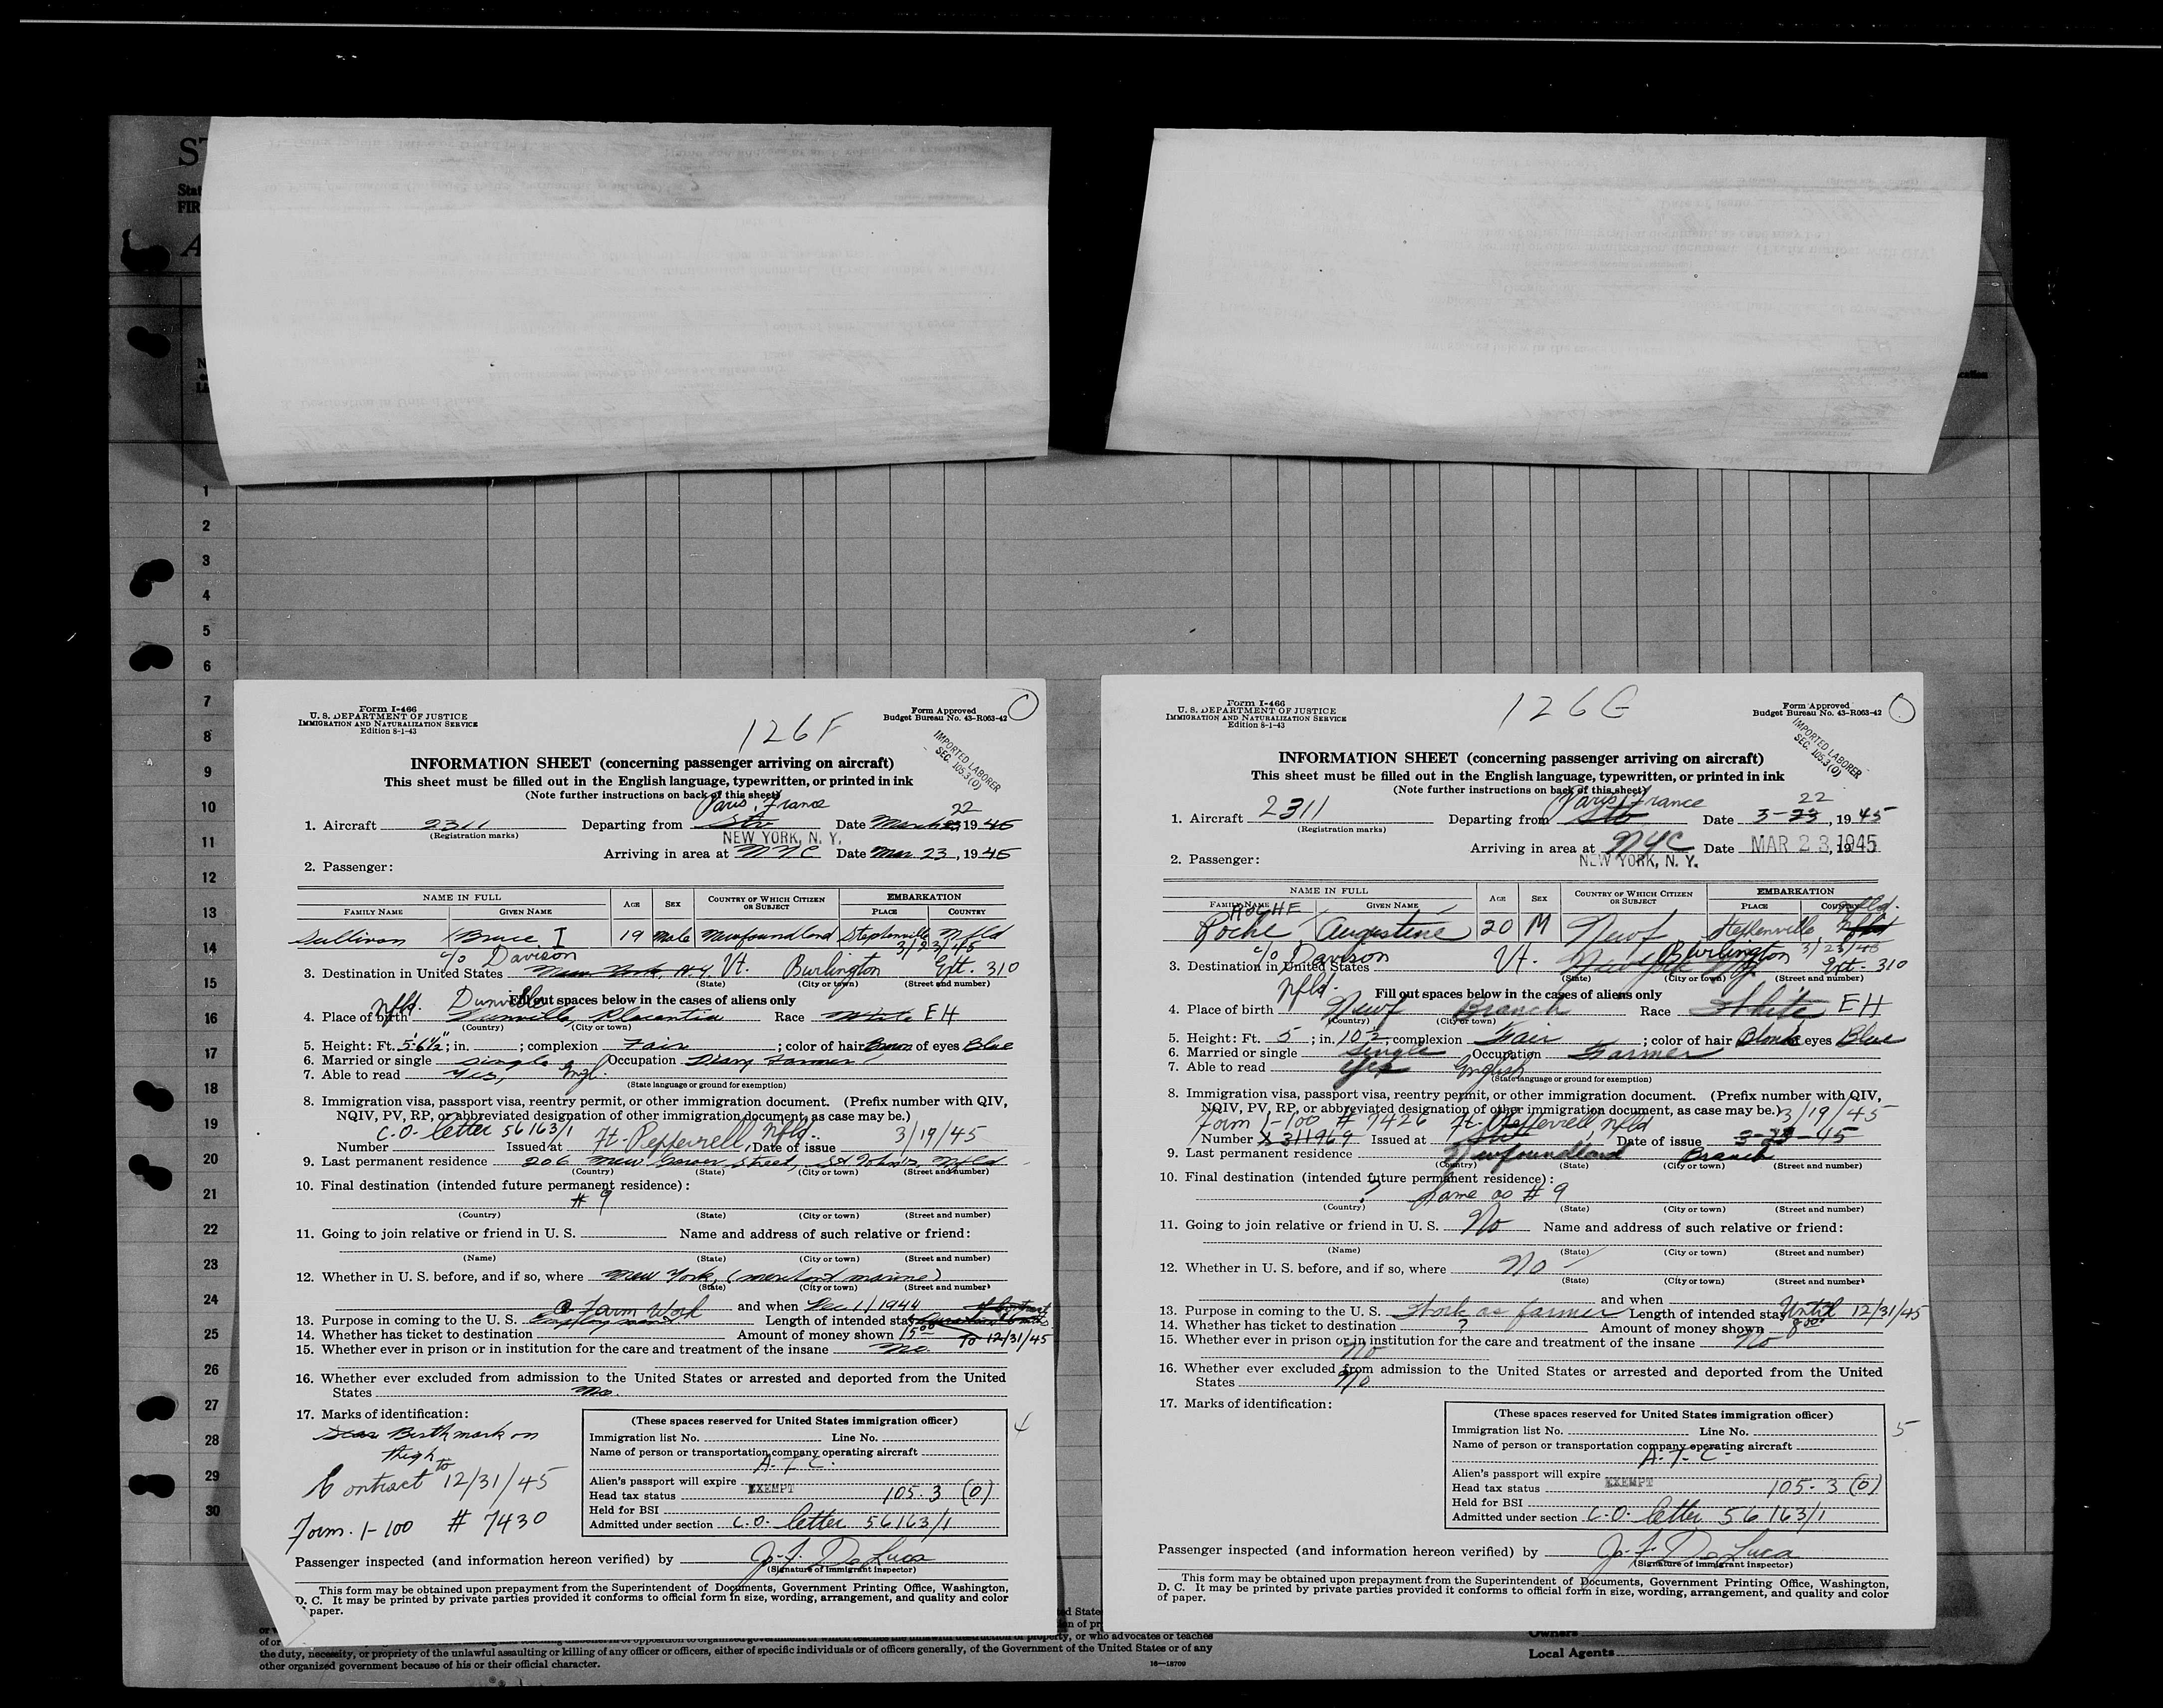 ST
Stat
FIR
A
1
2
3
4
5
6
7
8
9
10
11
12
13
14
15
16
17
18
19
20
21
22
23
24
25
26
27
28
29
30
Form I-466
U. S. DEPARTMENT OF JUSTICE
IMMIGRATION AND NATURALIZATION SERVICE
Edition 8-1-43
126F
Form Approved
Budget Bureau No. 43-R063-42
IMPORTED LABORER
SEC. 105.3(0)
INFORMATION SHEET (concerning passenger arriving on aircraft)
This sheet must be filled out in the English language, typewritten, or printed in ink
(Note further instructions on back of this sheet)
Paris, France 22
1. Aircraft 2311 Departing from Stv Date March 23 1945
(Registration marks)
NEW YORK, N. Y.
Arriving in area at NYC Date Mar. 23, 1945
2. Passenger:
NAME IN FULL AGE SEX COUNTRY OF WHICH CITIZEN OR SUBJECT EMBARKATION
FAMILY NAME GIVEN NAME PLACE COUNTRY
Sullivan Bruce I 19 Male Newfoundland Stephenville Nfld
3/23/45
c/o Davison
3. Destination in United States New York, N.Y. Vt. Burlington Ext. 310
(State) (City or town) (Street and number)
Nfld. Dunville
Fill out spaces below in the cases of aliens only
4. Place of birth Dunville, Placentia Race White EH
(Country) (City or town)
5. Height: Ft. 5'-6½"; in. ; complexion Fair ; color of hair Brown of eyes Blue
6. Married or single Single Occupation Diary Farmer
7. Able to read Yes, Engl.
(State language or ground for exemption)
8. Immigration visa, passport visa, reentry permit, or other immigration document. (Prefix number with QIV,
NQIV, PV, RP, or abbreviated designation of other immigration document, as case may be.)
C.O. letter 56163/1 Ft. Pepperrell, Nfld. 3/19/45
Number Issued at , Date of issue
9. Last permanent residence 206 New Gower Street, St John's, Nfld
(Country) (State) (City or town) (Street and number)
10. Final destination (intended future permanent residence):
# 9
(Country) (State) (City or town) (Street and number)
11. Going to join relative or friend in U. S. Name and address of such relative or friend:
(Name) (State) (City or town) (Street and number)
12. Whether in U. S. before, and if so, where New York, (merchant marine)
(State) (City or town) (Street and number)
and when Dec 1/1944
Farm Work
13. Purpose in coming to the U. S. Employment Length of intended stay
14. Whether has ticket to destination Amount of money shown 15.00 To 12/31/45
15. Whether ever in prison or in institution for the care and treatment of the insane No.
16. Whether ever excluded from admission to the United States or arrested and deported from the United
States No.
17. Marks of identification:
Scar Birthmark on
thigh
Contract to 12/31/45
Form. I-100 # 7430
(These spaces reserved for United States immigration officer)
Immigration list No. Line No.
Name of person or transportation company operating aircraft
A. T. C.
Alien's passport will expire
Head tax status EXEMPT 105.3 (0)
Held for BSI
Admitted under section C.O. letter 56163/1
4
Passenger inspected (and information hereon verified) by J. F. DeLuca
(Signature of immigrant inspector)
This form may be obtained upon prepayment from the Superintendent of Documents, Government Printing Office, Washington,
D. C. It may be printed by private parties provided it conforms to official form in size, wording, arrangement, and quality and color
of paper.
Form I-466
U. S. DEPARTMENT OF JUSTICE
IMMIGRATION AND NATURALIZATION SERVICE
Edition 8-1-43
126G
Form Approved
Budget Bureau No. 43-R063-42
IMPORTED LABORER
SEC. 105.3(0)
INFORMATION SHEET (concerning passenger arriving on aircraft)
This sheet must be filled out in the English language, typewritten, or printed in ink
(Note further instructions on back of this sheet)
Paris, France 22
1. Aircraft 2311 Departing from Stv Date 3-23, 1945
(Registration marks)
Arriving in area at NYC Date MAR 23, 1945
NEW YORK, N. Y.
2. Passenger:
NAME IN FULL AGE SEX COUNTRY OF WHICH CITIZEN OR SUBJECT EMBARKATION
FAMILY NAME GIVEN NAME PLACE COUNTRY
ROCHE Nfld.
Roche Augustine 20 M Newf Stephenville Nfld
c/o Davison Vt. Burlington 3/23/45
3. Destination in United States New York NY Ext. 310
(State) (City or town) (Street and number)
Nfld.
Fill out spaces below in the cases of aliens only
4. Place of birth Newf Branch Race White EH
(Country) (City or town)
5. Height: Ft. 5 ; in. 10½; complexion Fair ; color of hair Blonde eyes Blue
6. Married or single Single Occupation Farmer
7. Able to read Yes English
(State language or ground for exemption)
8. Immigration visa, passport visa, reentry permit, or other immigration document. (Prefix number with QIV,
NQIV, PV, RP, or abbreviated designation of other immigration document, as case may be.) 3/19/45
Form I-100 # 7426 Ft. Pepperrell Nfld
Number X 311969 Issued at , Date of issue 3-23-45
9. Last permanent residence Newfoundland Branch
(Country) (State) (City or town) (Street and number)
10. Final destination (intended future permanent residence):
? Same as # 9
(Country) (State) (City or town) (Street and number)
11. Going to join relative or friend in U. S. No Name and address of such relative or friend:
(Name) (State) (City or town) (Street and number)
12. Whether in U. S. before, and if so, where No
(State) (City or town) (Street and number)
and when
13. Purpose in coming to the U. S. Work as farmer Length of intended stay Until 12/31/45
14. Whether has ticket to destination ? Amount of money shown 8.00
15. Whether ever in prison or in institution for the care and treatment of the insane No
No
16. Whether ever excluded from admission to the United States or arrested and deported from the United
States No
17. Marks of identification:
(These spaces reserved for United States immigration officer)
Immigration list No. Line No.
Name of person or transportation company operating aircraft
A. T. C.
Alien's passport will expire
Head tax status EXEMPT 105.3 (0)
Held for BSI
Admitted under section C.O. letter 56163/1
5
Passenger inspected (and information hereon verified) by J. F. DeLuca
(Signature of immigrant inspector)
This form may be obtained upon prepayment from the Superintendent of Documents, Government Printing Office, Washington,
D. C. It may be printed by private parties provided it conforms to official form in size, wording, arrangement, and quality and color
of paper.
property, or who advocates or teaches
the duty, necessity, or propriety of the unlawful assaulting or killing of any officer or officers, either of specific individuals or of officers generally, of the Government of the United States or of any
other organized government because of his or their official character.
16—18709
Owners
Local Agents